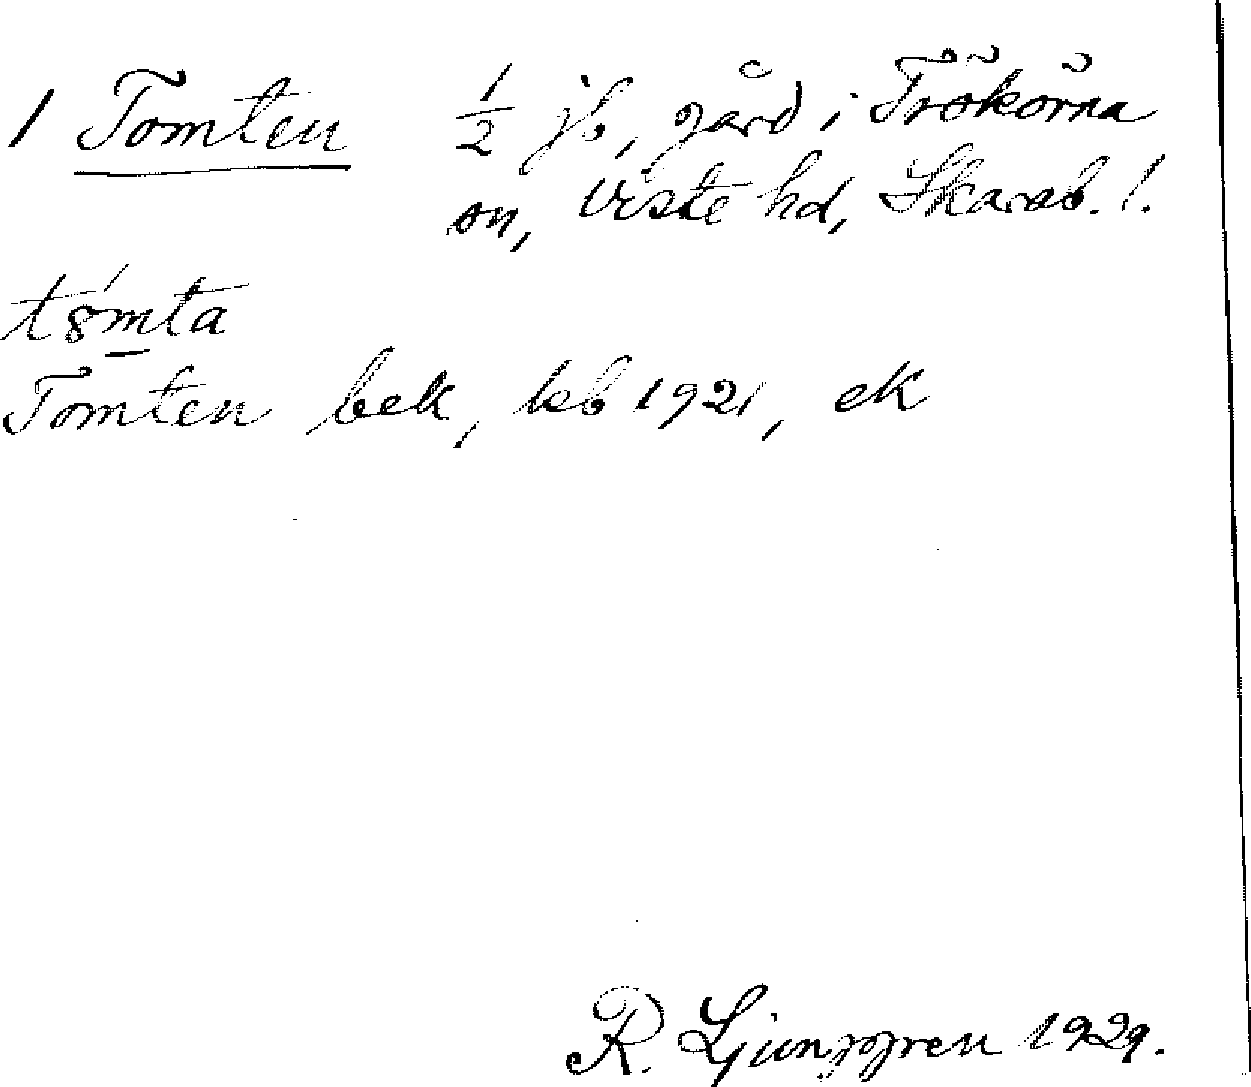 1 Tomten ½ jb, gård i Trökörna
sn, Viste hd, Skarab. l.
tómta
Tomten bek, ksb 1921, ek
R. Ljunggren 1929.